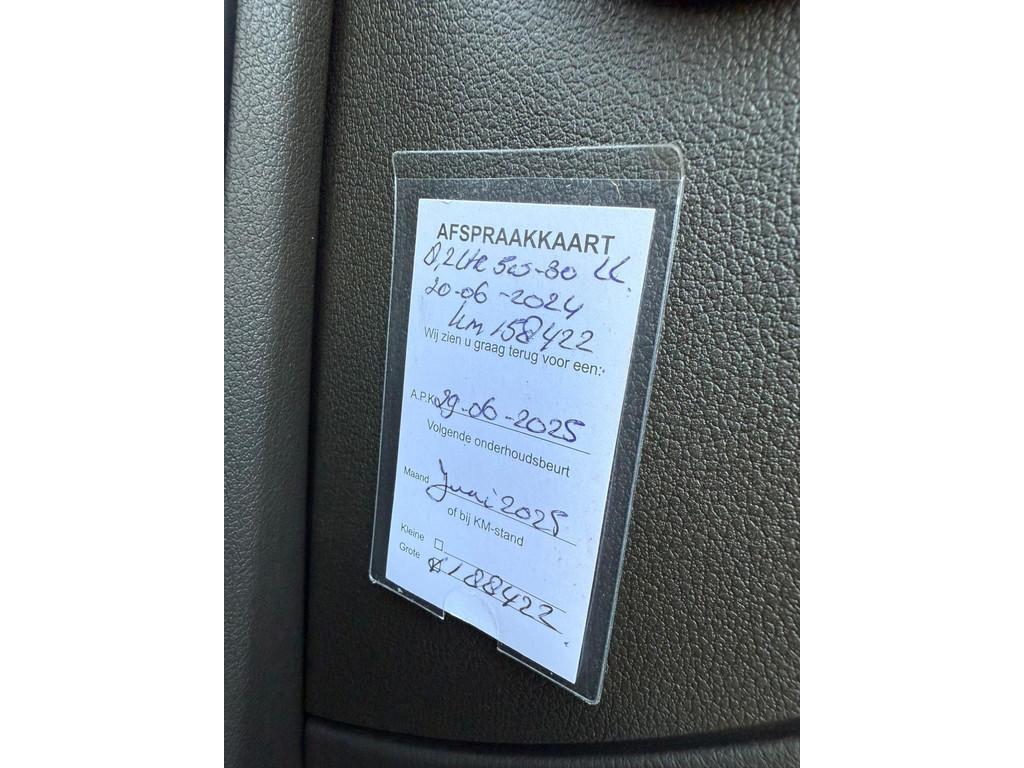 AFSPRAAKKAART
8,2 Ltr 5w-30 LL
20-06-2024
km 158422
Wij zien u graag terug voor een:
A.P.K. 29-06-2025
Volgende onderhoudsbeurt
Maand Juni 2025
of bij KM-stand
Kleine
Grote 188422